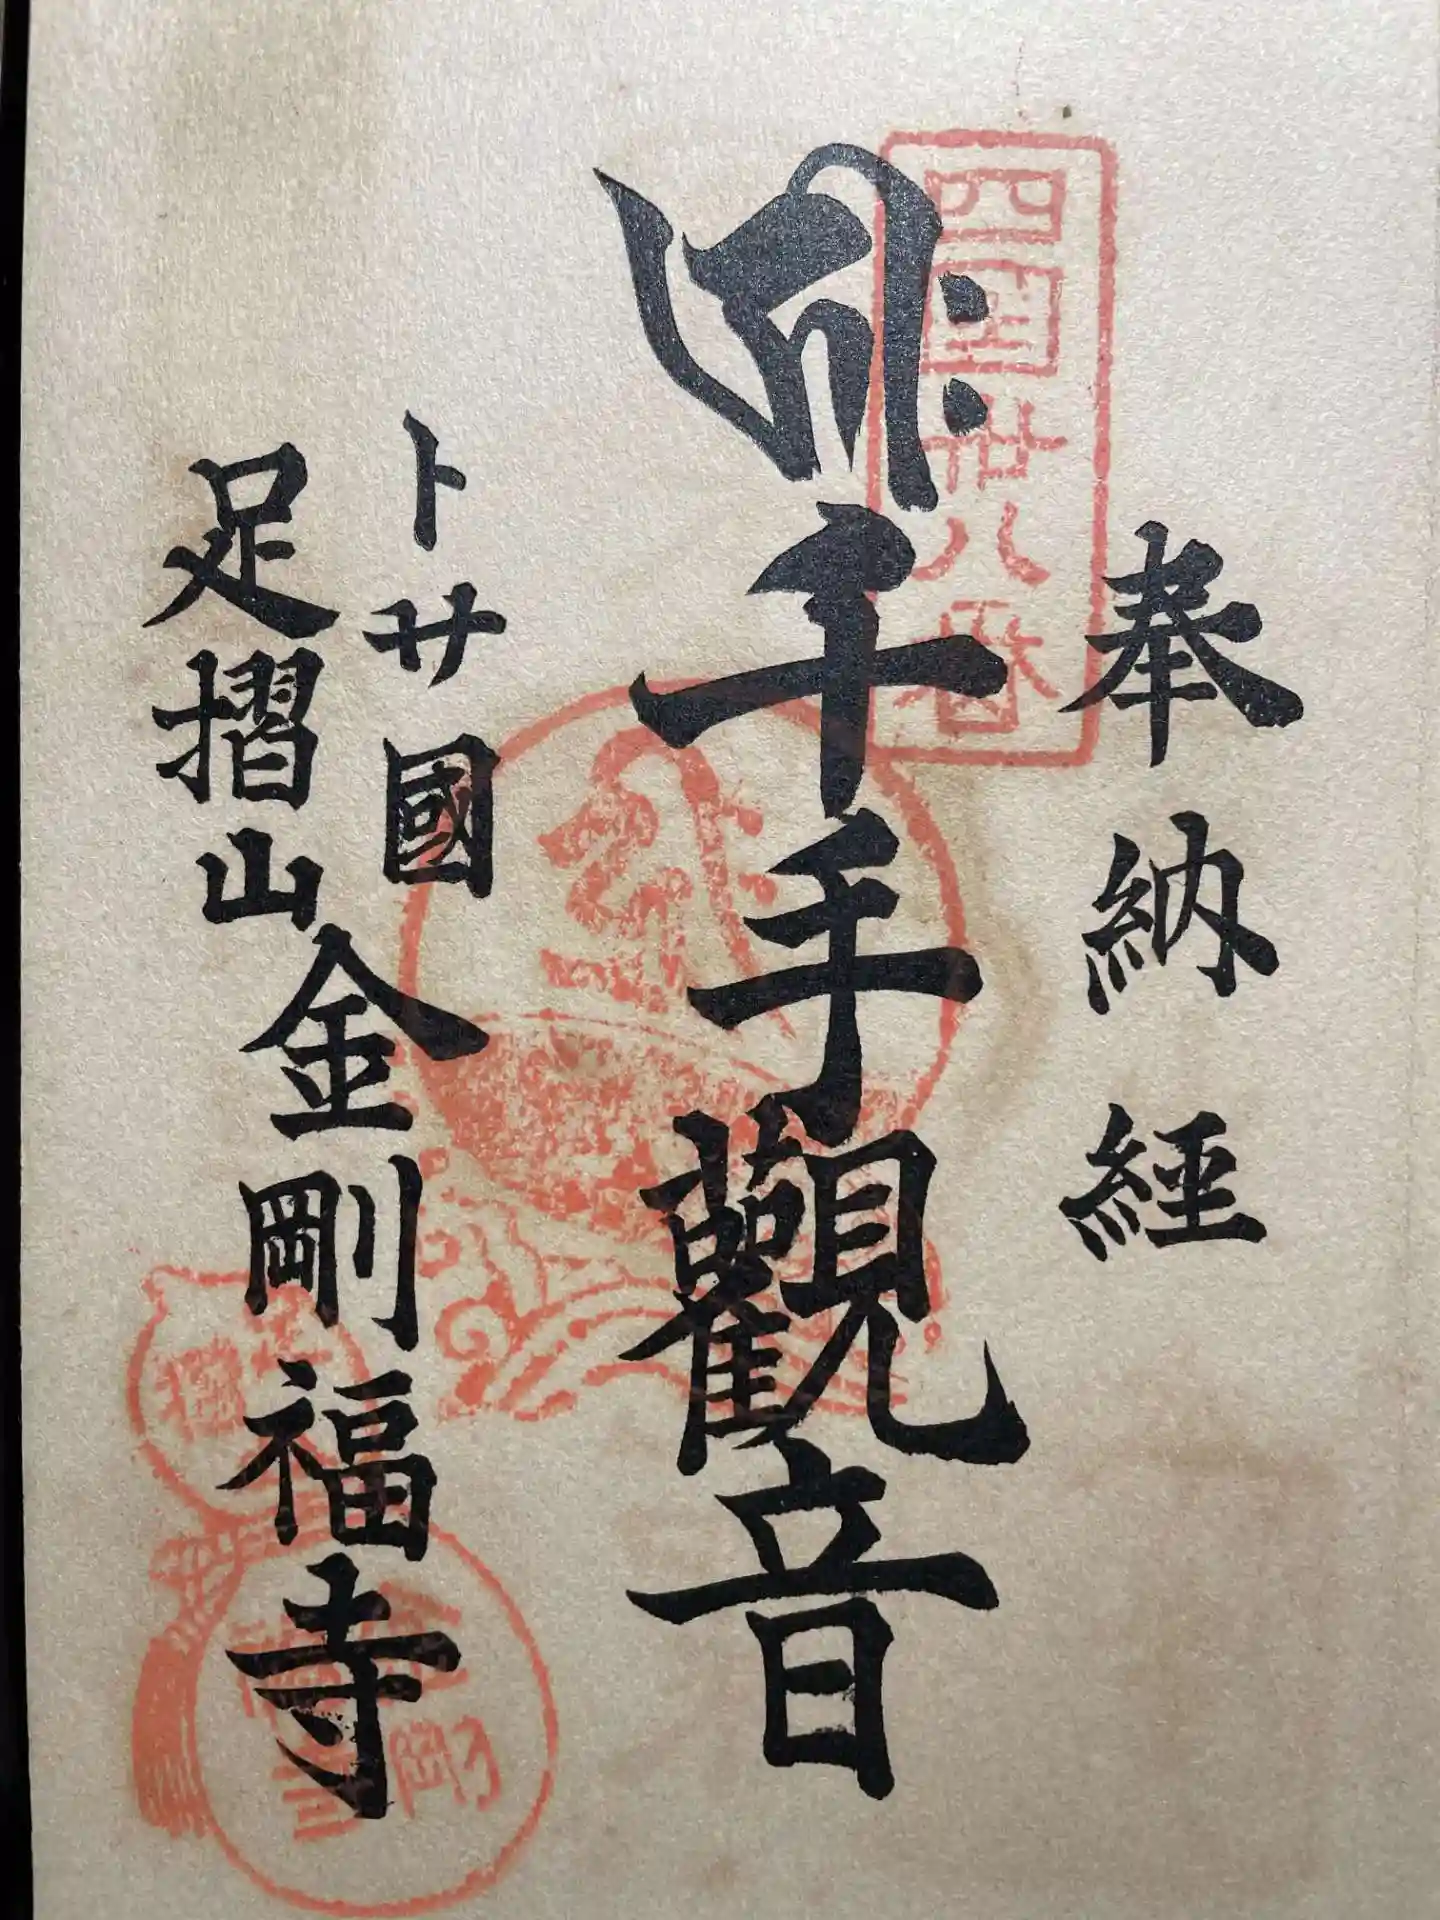 奉納経
四国卅八番
ह्रीः
千手觀音
ト廿國
足摺山
金剛福寺